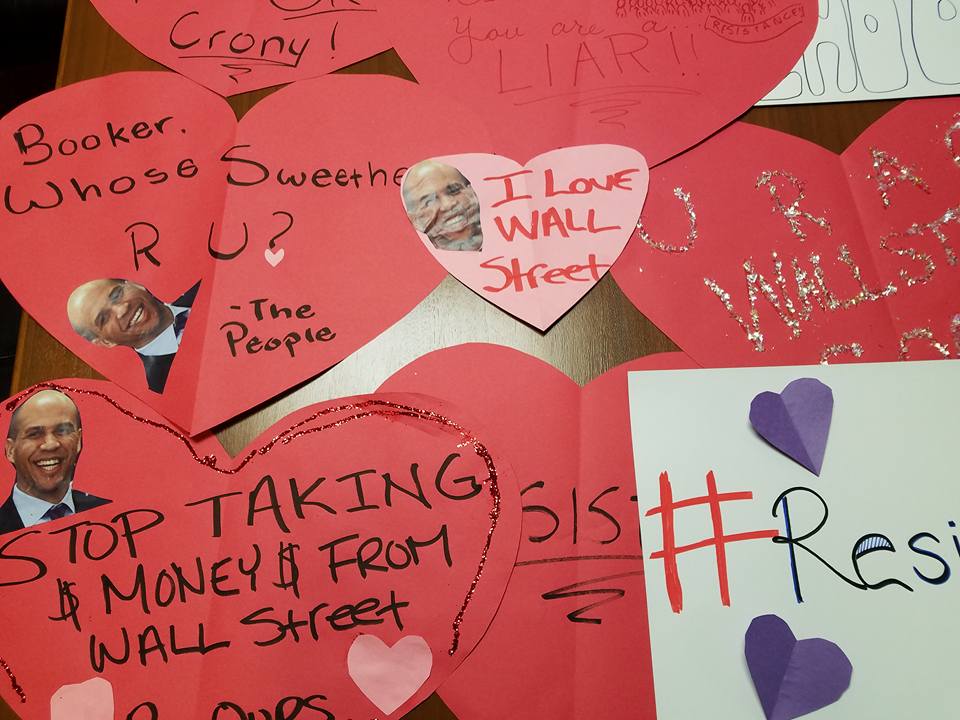 Crony!
You are a
LIAR!!
RESISTANCE
Booker.
Whose Sweethe
R U?
-The
People
I LOVE
WALL
Street
U R A
WALL ST
STOP TAKING
$ MONEY $ FROM
WALL Street
SIS
#Resi